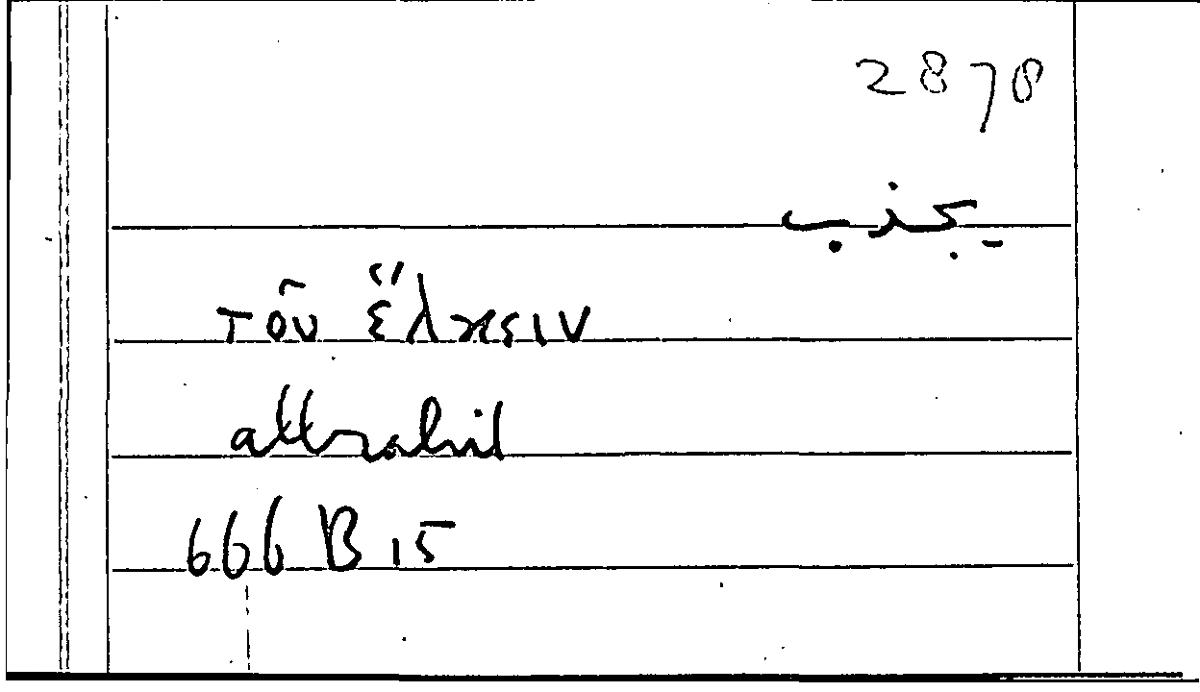 2878
يجذب
τοῦ ἕλκειν
attrahit
666 B 15